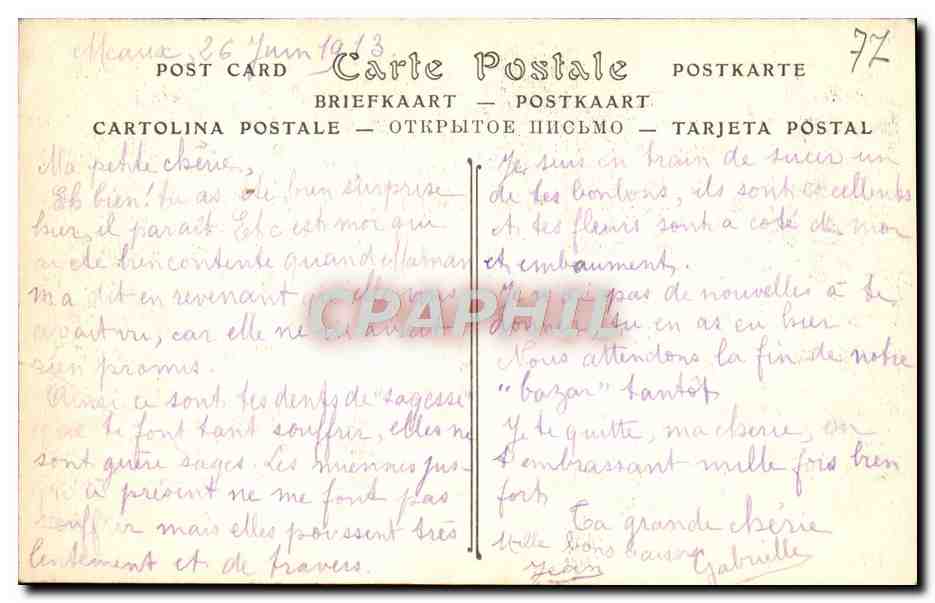 Meaux, 26 Juin 1913
77
POST CARD Carte Postale POSTKARTE
BRIEFKAART — POSTKAART
CARTOLINA POSTALE — ОТКРЫТОЕ ПИСЬМО — TARJETA POSTAL
Ma petite chérie,
Eh bien! tu as été bien surprise
hier, il paraît. Et c'est moi qui
ai été bien contente quand Maman
m'a dit en revenant qu'elle vous
avait vu, car elle ne m'avait
rien promis.
Ainsi ce sont tes dents de "sagesse"
que te font tant souffrir, elles ne
sont guère sages. Les miennes jus-
qu'à présent ne me font pas
souffrir mais elles poussent très
lentement et de travers.
Je suis en train de sucer un
de tes bonbons, ils sont excellents
et tes fleurs sont à coté de moi
et embaument.
Je n'ai pas de nouvelles à te
donner, tu en as eu hier.
Nous attendons la fin de notre
"bazar" tantôt
Je te quitte, ma chérie, en
t'embrassant mille fois bien
fort.
Ta grande chérie
Gabrielle
Mille bons baisers
Jean
CPAPHIL